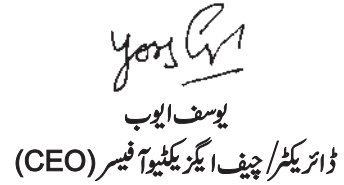 یوسف ایوب
ڈائریکٹر/ چیف ایگزیکٹیو آفیسر (CEO)